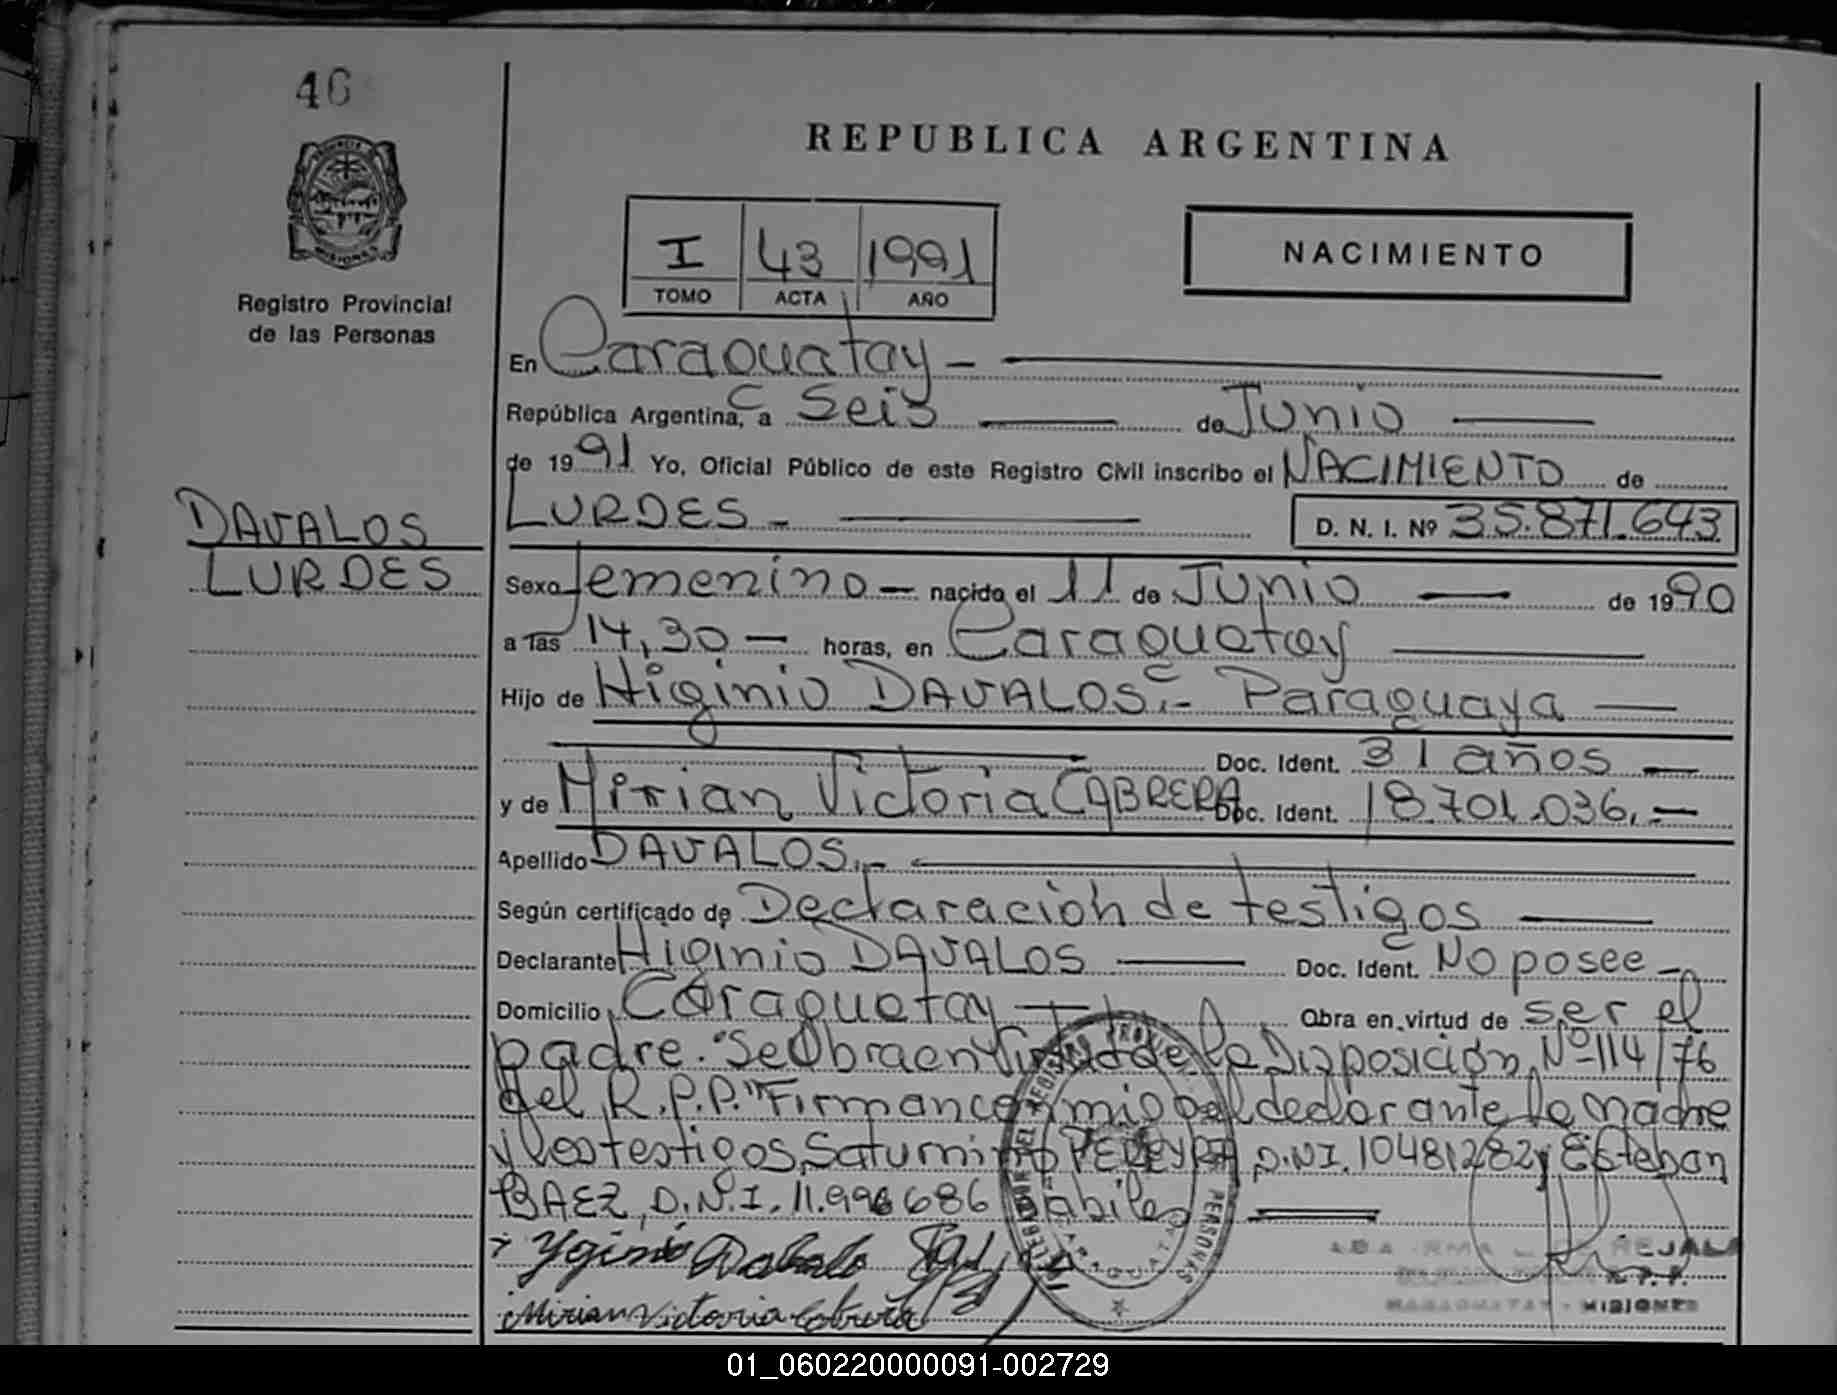 46
REPUBLICA ARGENTINA
I 43 1991
TOMO ACTA AÑO
NACIMIENTO
Registro Provincial
de las Personas
En Caraguatay -
República Argentina, a Seis de Junio
de 1991 Yo, Oficial Público de este Registro Civil inscribo el NACIMIENTO de
LURDES - D. N. I. Nº 35.871.643
DAVALOS
LURDES
Sexo femenino - nacido el 11 de Junio de 1990
a las 14,30 - horas, en Caraguatay
Hijo de Higinio DAVALOS.- Paraguaya
Doc. Ident. 31 años -
y de Mirian Victoria CABRERA Doc. Ident. 18.701.036.-
Apellido DAVALOS.-
Según certificado de Declaración de testigos
Declarante Higinio DAVALOS Doc. Ident. No posee -
Domicilio Caraguatay - Obra en virtud de ser el
padre. "Se Obra en Virtud de la Disposición Nº 114/76
del R.P.P." Firman conmigo al dedor ante la madre
y los testigos Saturnino PEREYRA D.N.I. 10481282 y Esteban
BAEZ, D.N.I. 11.996686 habiles
Yginio Dabalo
Mirian Victoria Cabrera
DEL REGISTRO PERSONAS
R.P.P.
MISIONES
01_060220000091-002729